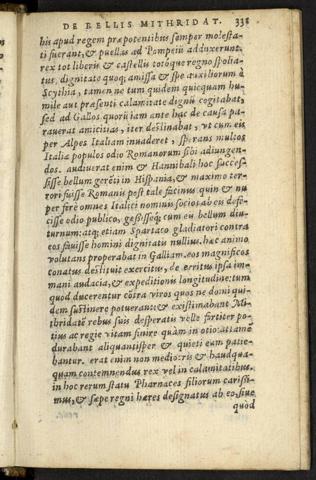 DE BELLIS MITHRIDAT. 338
his apud regem præpotentibus semper molesta-
ti fuerant, & puellas ad Pompeiū adduxerunt.
rex tot liberis & castellis totoque regno spolia-
tus, dignitate quoq; amissa & spe auxiliorum à
Scythia, tamen ne tum quidem quicquam hu-
mile aut præsenti calamitate dignū cogitabat,
sed ad Gallos quorū iam ante hac de causa pa-
rauerat amicitias, iter destinabat, vt cum eis
per Alpes Italiam inuaderet, sperans multos
Italiæ populos odio Romanorum sibi adiungen-
dos. audiuerat enim & Hannibali hoc succes-
sisse bellum gerēti in Hispania, & maximo ter-
rori fuisse Romanis post tale facinus quin & nu
per ferè omnes Italici nominis socios ab eis defe-
cisse odio publico, gessisseq; cum eis bellum diu-
turnum: atq; etiam Spartaco gladiatori contra
eos fauisse homini dignitatis nullius. hæc animo
volutans properabat in Galliam. eos magnificos
conatus destituit exercitus, deterritus ipsa im-
mani audacia, & expeditionis longitudine: tum
quod ducerentur cōtra viros quos ne domi qui-
dem sustinere potuerant: & existimabant Mi-
thridatē rebus suis desperatis velle fortiter po-
tius ac regie vitam finire quàm in otio: attamē
durabant aliquantisper & quieti eum patie-
bantur. erat enim non mediocris & haudqua-
quam contemnendus rex vel in calamitatibus.
in hoc rerum statu Pharnaces filiorum carissi-
mus, & sæpe regni hæres designatus ab eo, siue
quod